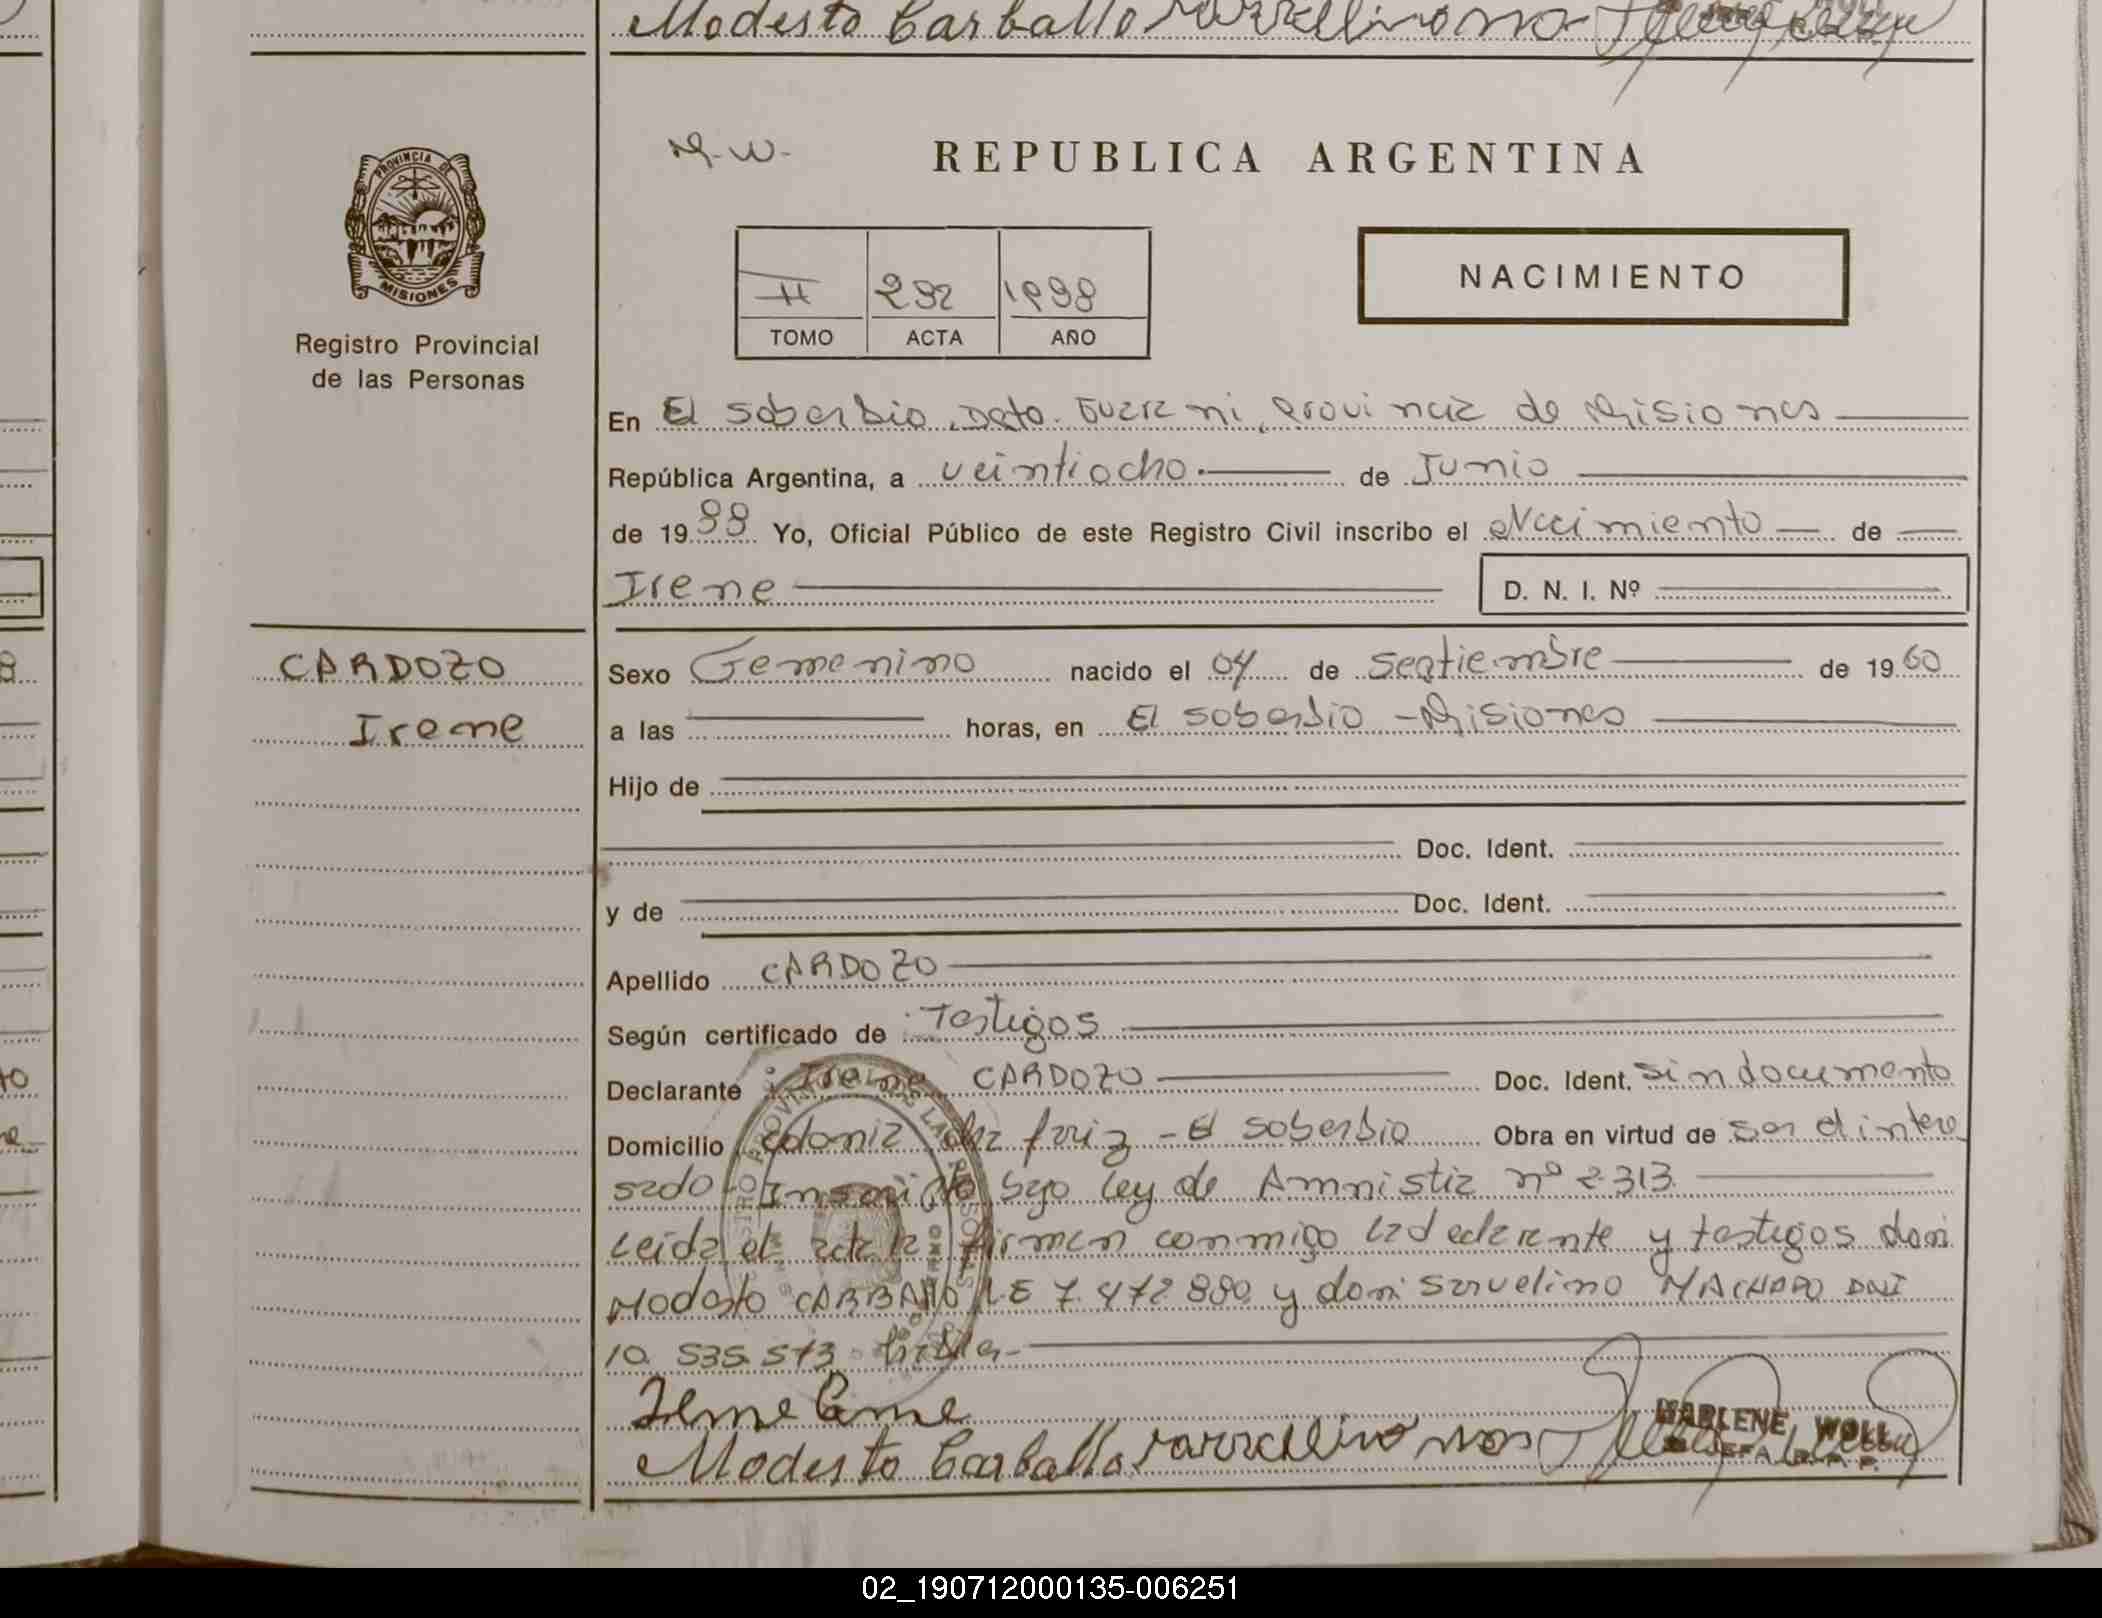 Modesto Carballo
PROVINCIA DE
MISIONES
Registro Provincial
de las Personas
CARDOZO
Irene
M.W.-
REPUBLICA ARGENTINA
II 292 1988
TOMO ACTA AÑO
NACIMIENTO
En El soberbio, Dpto. Guarani, Provincia de Misiones
República Argentina, a veintiocho.- de Junio
de 1988 Yo, Oficial Público de este Registro Civil inscribo el Nacimiento de
Irene D. N. I. Nº
Sexo Femenino nacido el 04 de Septiembre de 1960
a las horas, en El soberbio - Misiones
Hijo de
Doc. Ident.
y de Doc. Ident.
Apellido CARDOZO
Según certificado de Testigos
Declarante Irene CARDOZO Doc. Ident. sin documento
Domicilio colonia - El soberbio Obra en virtud de ser el intere
sado - Inscripto bajo Ley de Amnistia nº 2.313.
Leida el acta la firman conmigo la declarante y testigos don
Modesto CARBALLO LE 7.472.880 y don Sarvelino MACHADO DNI
10.535.573
Irene
Modesto Carballo
MARLENE WOLL
JEFA R.P.P.
02_190712000135-006251